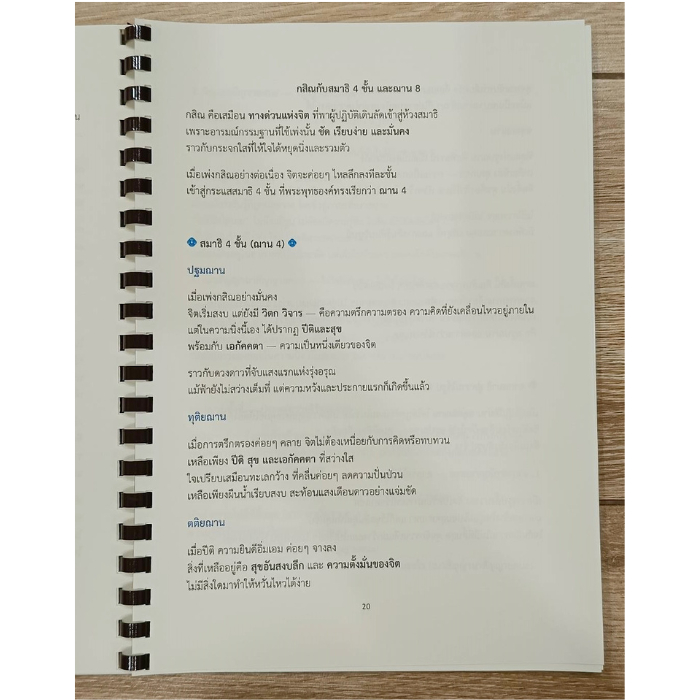 กสิณกับสมาธิ 4 ขั้น และฌาน 8
กสิณ คือเสมือน ทางด่วนแห่งจิต ที่พาผู้ปฏิบัติเดินลัดเข้าสู่ห้วงสมาธิ
เพราะอารมณ์กรรมฐานที่ใช้เพ่งนั้น ชัด เรียบง่าย และมั่นคง
ราวกับกระจกใสที่ให้ใจได้หยุดนิ่งและรวมตัว
เมื่อเพ่งกสิณอย่างต่อเนื่อง จิตจะค่อยๆ ไหลลึกลงทีละชั้น
เข้าสู่กระแสสมาธิ 4 ขั้น ที่พระพุทธองค์ทรงเรียกว่า ฌาน 4
สมาธิ 4 ขั้น (ฌาน 4)
ปฐมฌาน
เมื่อเพ่งกสิณอย่างมั่นคง
จิตเริ่มสงบ แต่ยังมี วิตก วิจาร — คือความตรึกความตรอง ความคิดที่ยังเคลื่อนไหวอยู่ภายใน
แต่ในความนิ่งนี้เอง ได้ปรากฏ ปีติและสุข
พร้อมกับ เอกัคคตา — ความเป็นหนึ่งเดียวของจิต
ราวกับดวงดาวที่จับแสงแรกแห่งรุ่งอรุณ
แม้ฟ้ายังไม่สว่างเต็มที่ แต่ความหวังและประกายแรกก็เกิดขึ้นแล้ว
ทุติยฌาน
เมื่อการตรึกตรองค่อยๆ คลาย จิตไม่ต้องเหนื่อยกับการคิดหรือทบทวน
เหลือเพียง ปีติ สุข และเอกัคคตา ที่สว่างใส
ใจเปรียบเสมือนทะเลกว้าง ที่คลื่นค่อยๆ ลดความปั่นป่วน
เหลือเพียงผืนน้ำเรียบสงบ สะท้อนแสงเดือนดาวอย่างแจ่มชัด
ตติยฌาน
เมื่อปีติ ความยินดีอิ่มเอม ค่อยๆ จางลง
สิ่งที่เหลืออยู่คือ สุขอันสงบลึก และ ความตั้งมั่นของจิต
ไม่มีสิ่งใดมาทำให้หวั่นไหวได้ง่าย
20